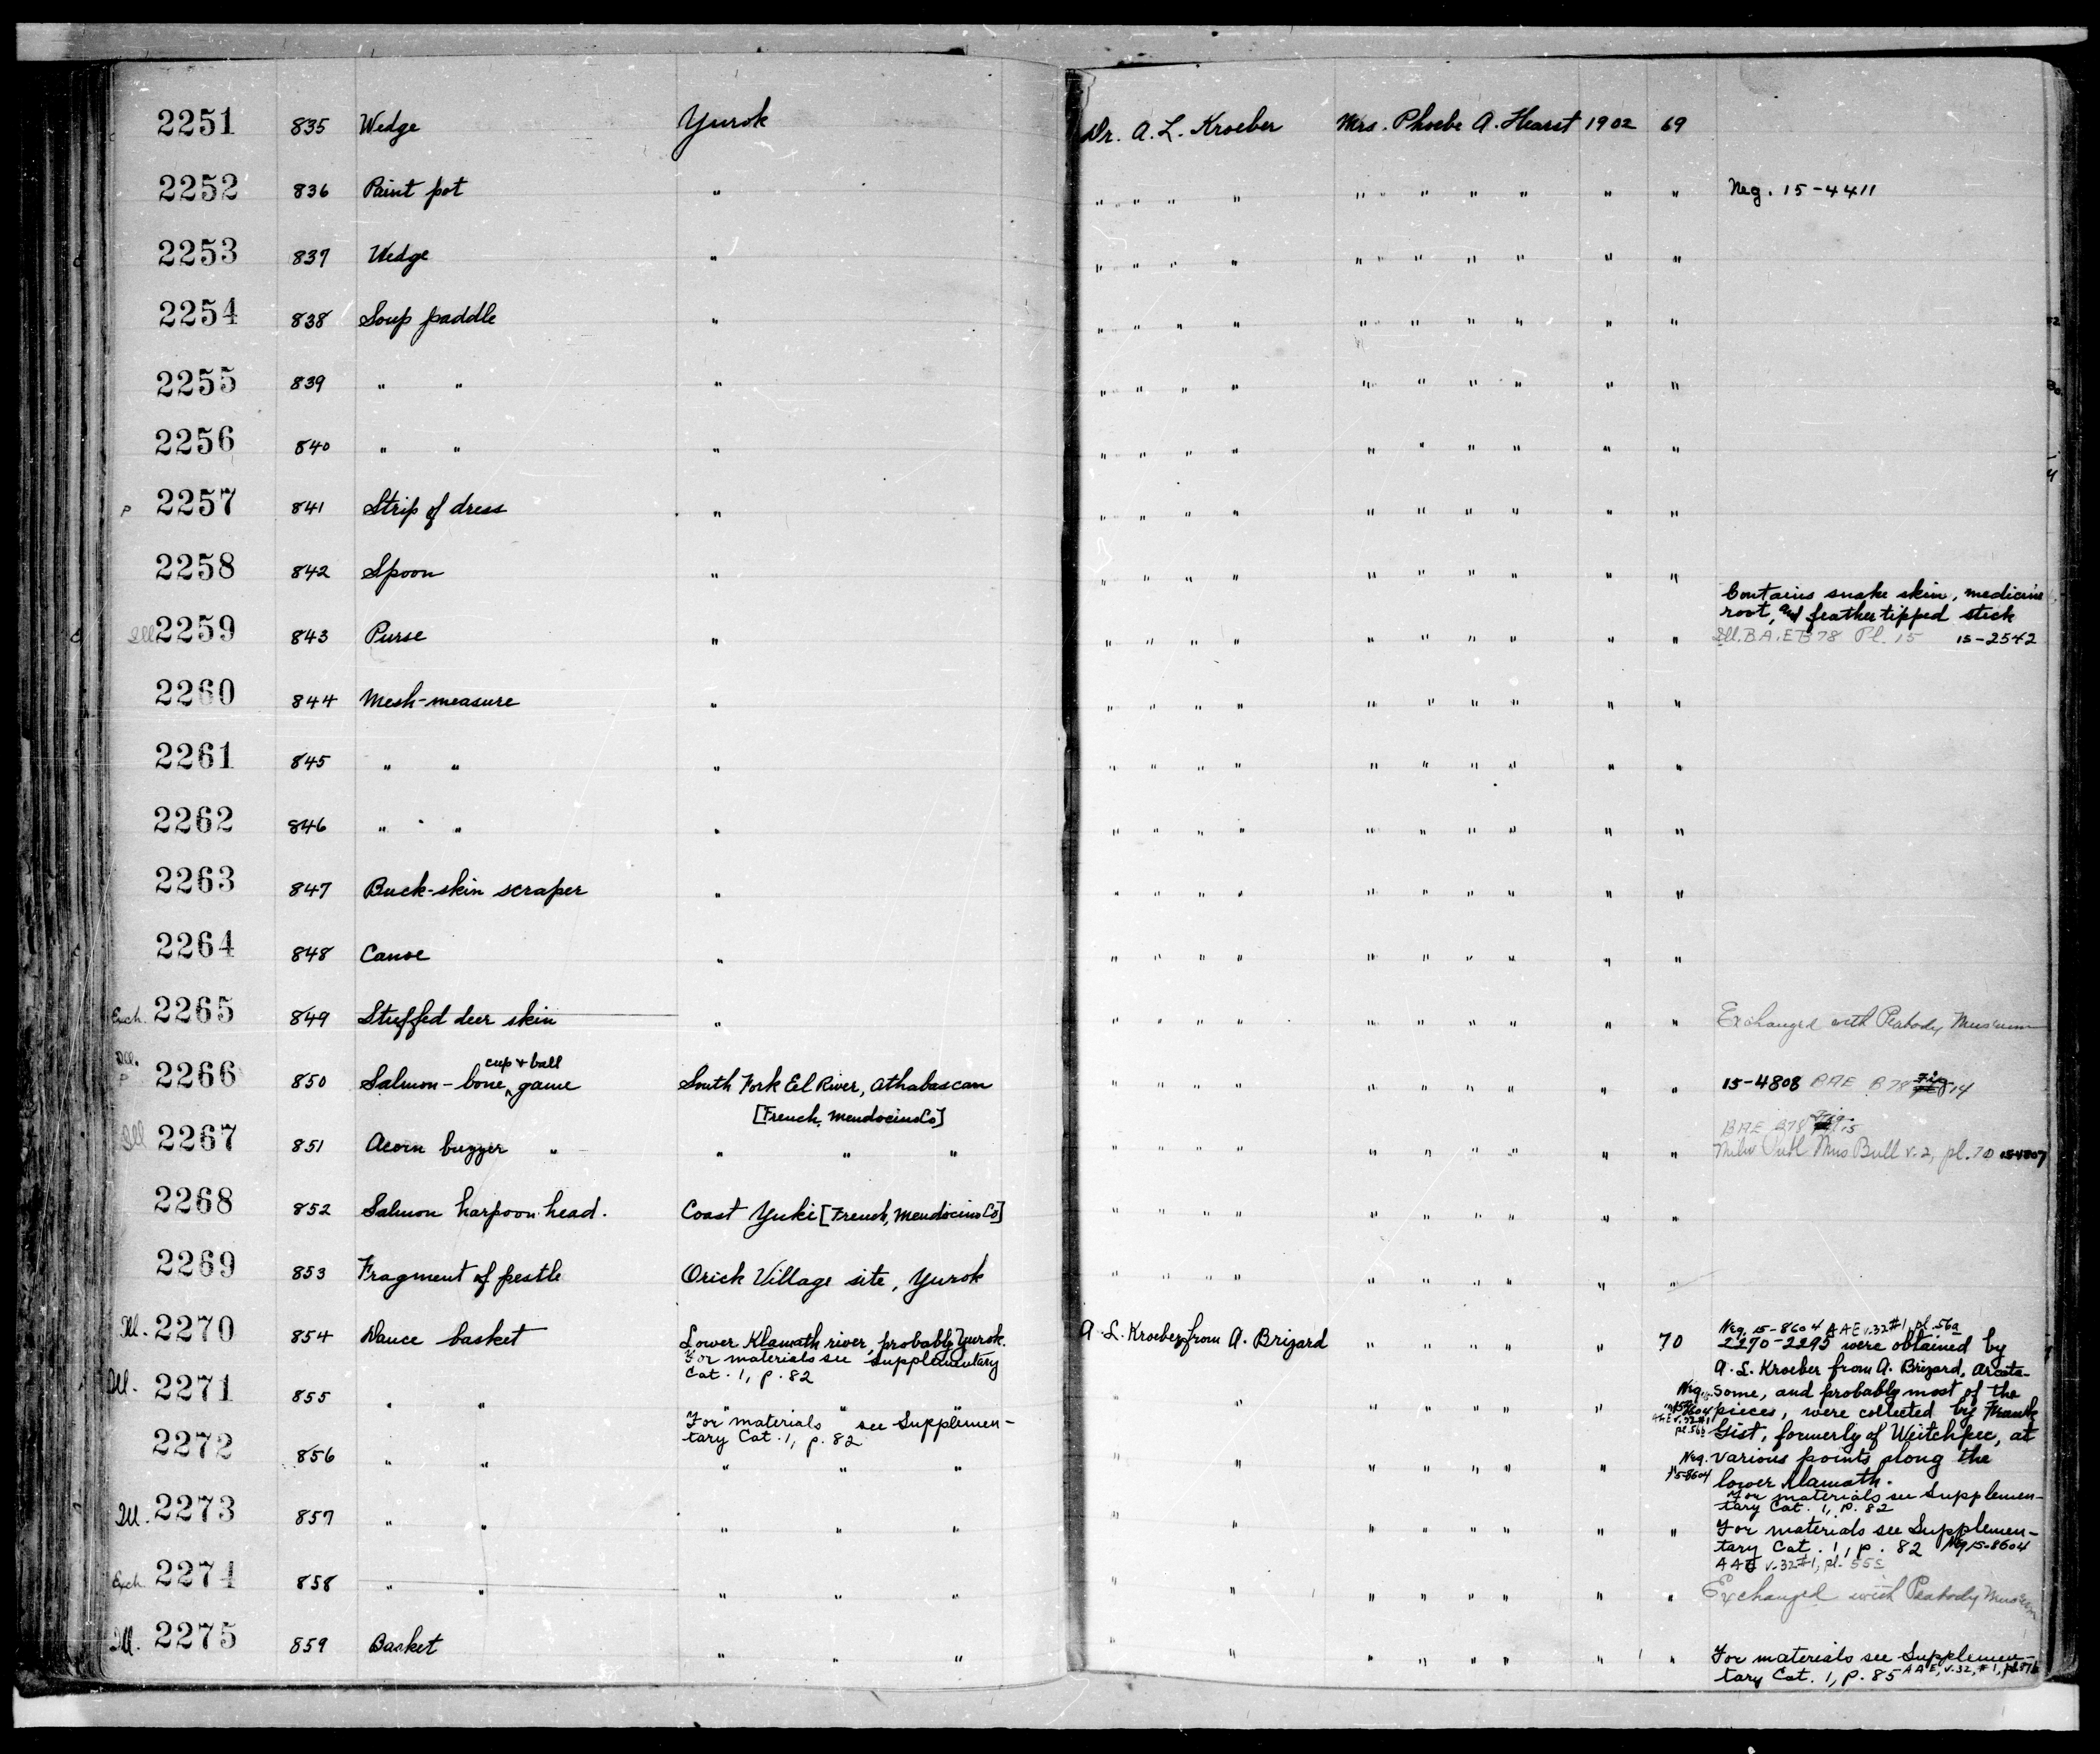 2251 835 Wedge Yurok Dr. A. L. Kroeber Mrs. Phoebe A. Hearst 1902 69
2252 836 Paint pot " " " " " " " " " " " Neg. 15-4411
2253 837 Wedge " " " " " " " " " " "
2254 838 Soup paddle " " " " " " " " " " "
2255 839 " " " " " " " " " " " " "
2256 840 " " " " " " " " " " " " "
P 2257 841 Strip of dress " " " " " " " " " " "
2258 842 Spoon " " " " " " " " " " "
Contains snake skin, medicine
root, and feather tipped stick
Ill. 2259 843 Purse " " " " " " " " " " " Ill. B.A.E. B 78 Pl. 15 15-2542
2260 844 Mesh-measure " " " " " " " " " " "
2261 845 " " " " " " " " " " " " "
2262 846 " " " " " " " " " " " " "
2263 847 Buck-skin scraper " " " " " " " " " " "
2264 848 Canoe " " " " " " " " " " "
Exch. 2265 849 Stuffed deer skin " " " " " " " " " " " Exchanged with Peabody Museum
cup + ball
Ill. P 2266 850 Salmon-bone ^ game South Fork Eel River, Athabascan " " " " " " " " " " 15-4808 BAE B78 Fig 14
[French, Mendocino Co]
BAE B78 Fig. 15
Ill 2267 851 Acorn buzzer " " " " " " " " " " " " " " Milw Publ Mus Bull v.2, pl. 70 15-4807
2268 852 Salmon harpoon head. Coast Yuki [French, Mendocino Co] " " " " " " " " " "
2269 853 Fragment of pestle Orick Village site, Yurok " " " " " " " " " "
Neg. 15-8604 AAE v.32#1, pl. 56a
Ill. 2270 854 Dance basket Lower Klamath river, probably Yurok. A. L. Kroeber, from A. Brizard " " " " " 70 2270-2295 were obtained by
For materials see Supplementary
Cat. 1, p. 82
A. L. Kroeber from A. Brizard, Arcata-
Ill. 2271 855 " " " " " " " " " " " " Neg. 15-8604 AAE v.32#1 pl. 56b Some, and probably most of the
For materials see Supplemen-
tary Cat. 1, p. 82
pieces, were collected by Frank
Gist, formerly of Weitchpec, at
2272 856 " " " " " " " " " " " " Neg. 15-8604 various points along the
lower Klamath.
For materials see Supplemen-
tary Cat. 1, p. 82
Ill. 2273 857 " " " " " " " " " " " " " For materials see Supplemen-
tary Cat. 1, p. 82 Neg 15-8604
AAE v.32#1, pl. 55c
Exch. 2274 858 " " " " " " " " " " " " " Exchanged with Peabody Museum
Ill. 2275 859 Basket " " " " " " " " " " " For materials see Supplemen-
tary Cat. 1, p. 85 AAE, v.32, #1, pl.